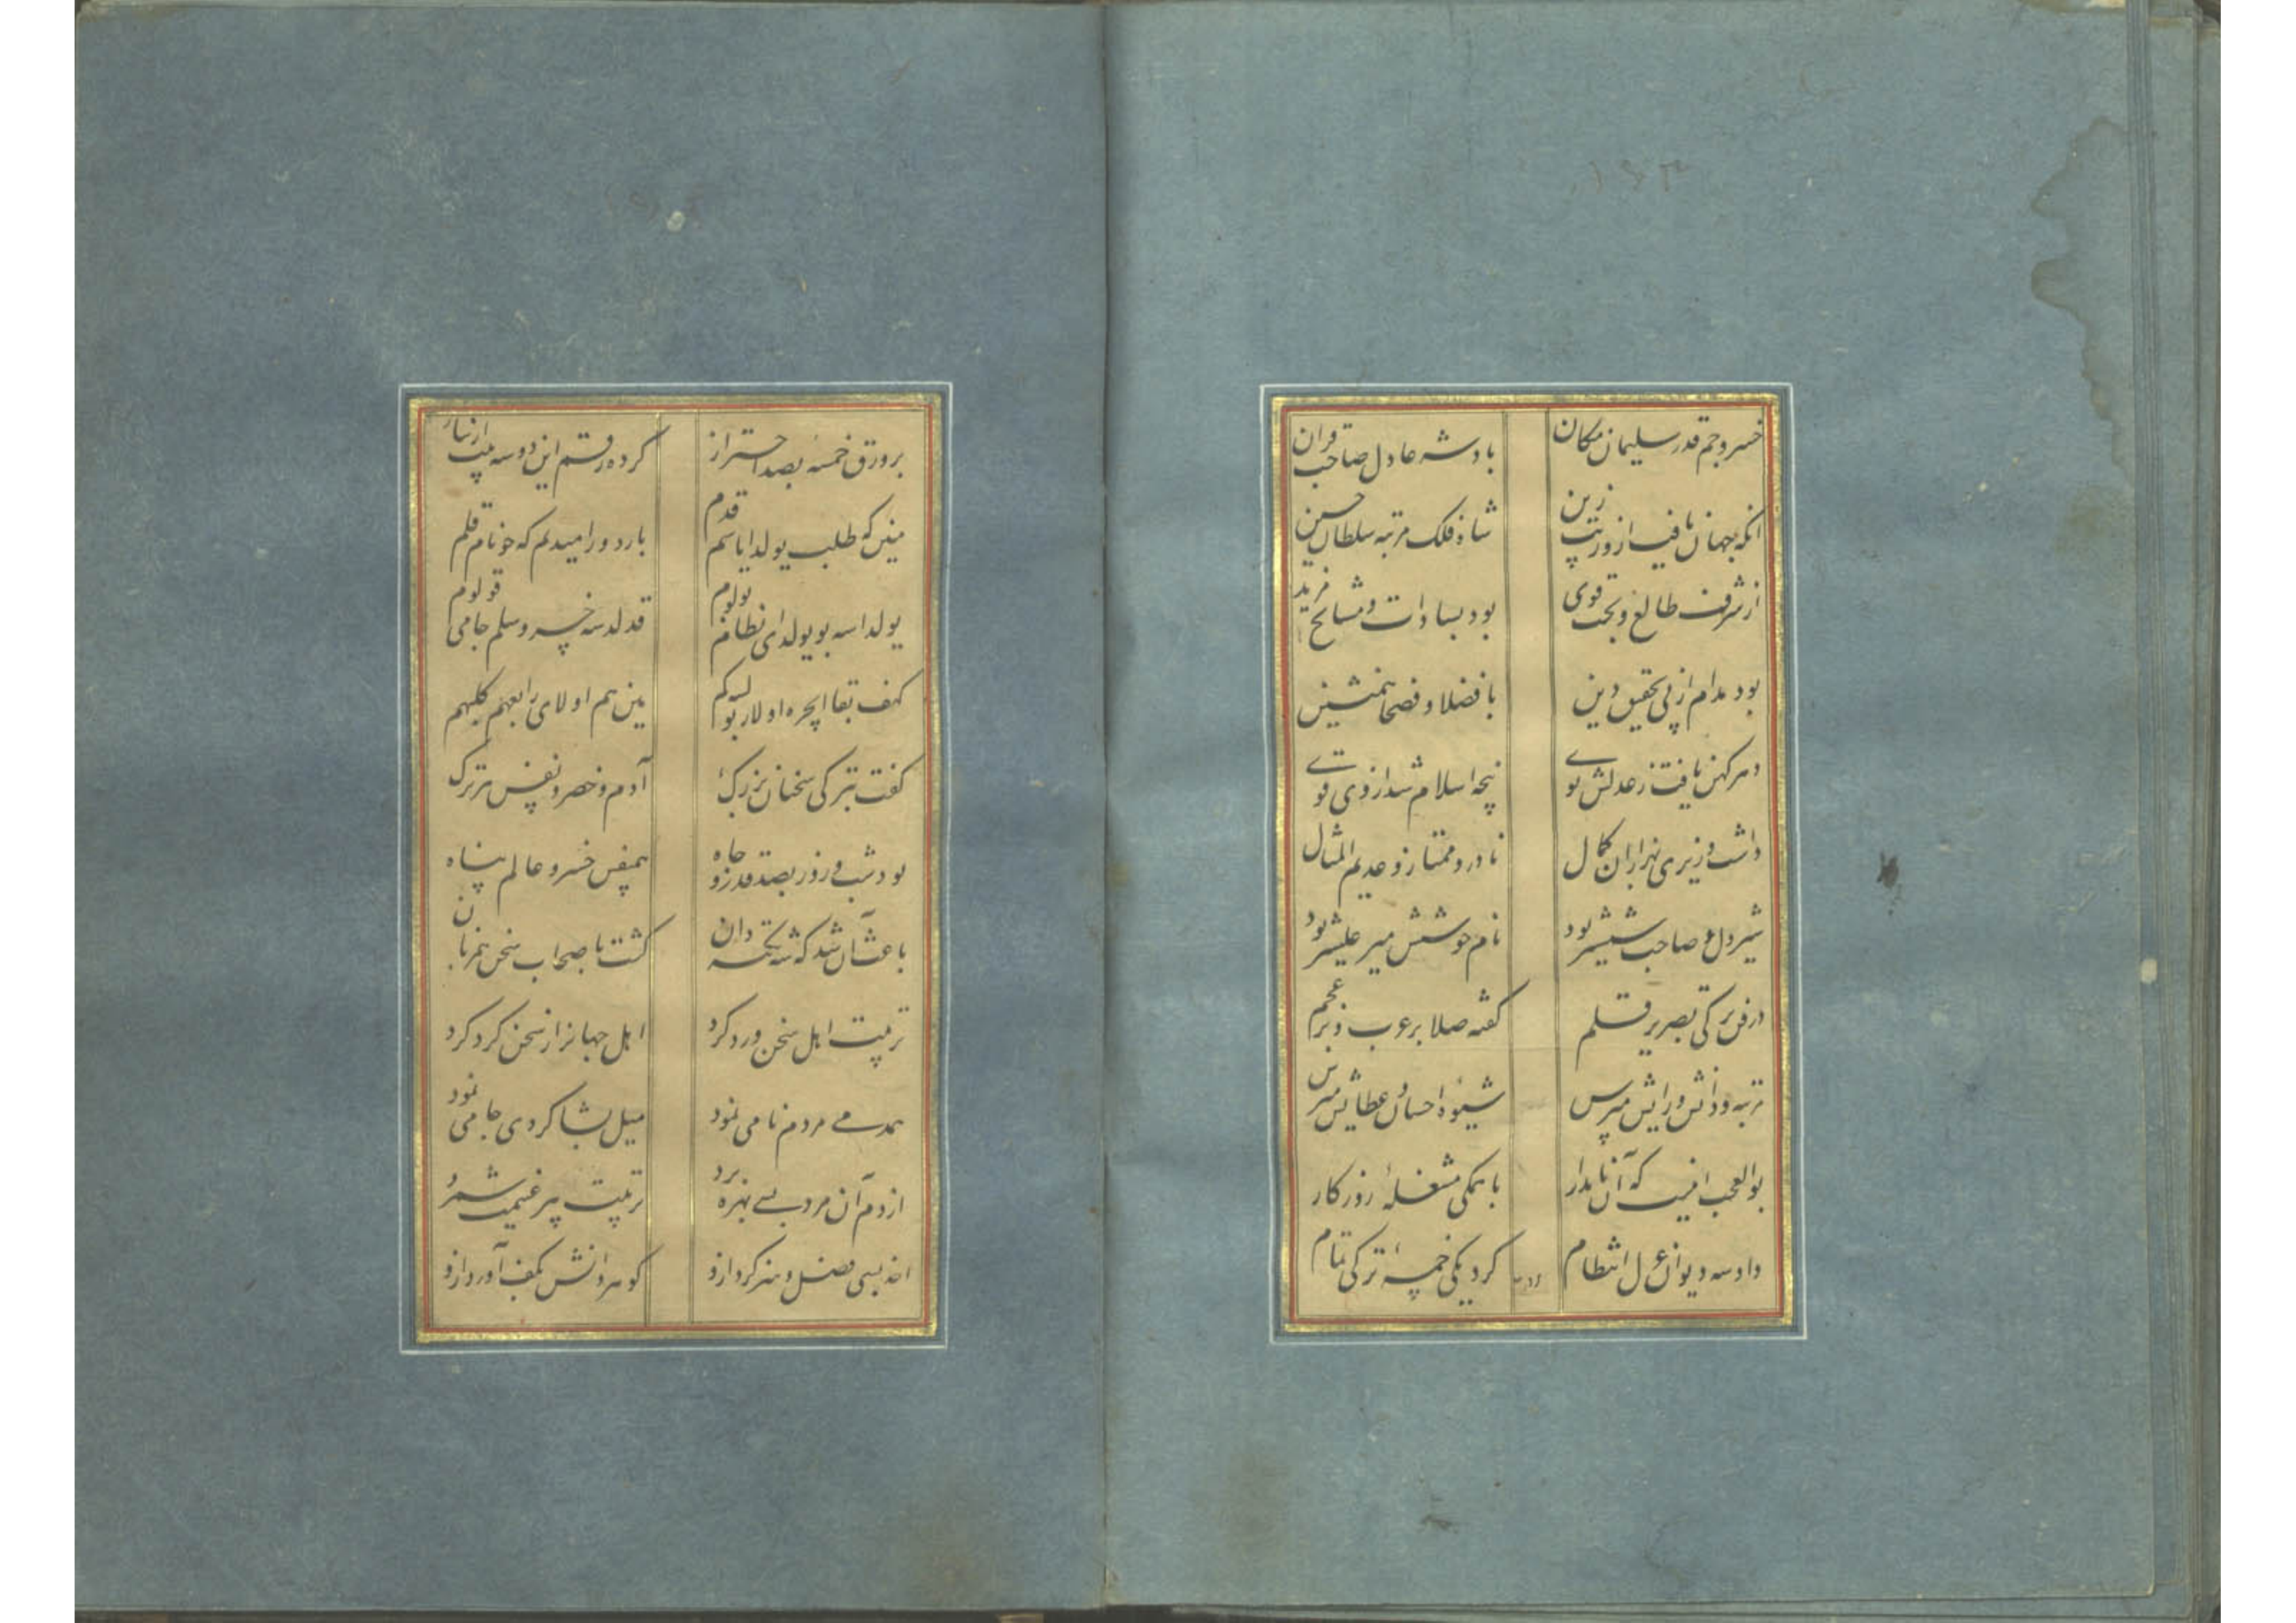 ۱۶۳
خسرو جم قدر سلیمان مکان	بادشه عادل صاحب قران
انکه بجهان یافت ازو زیب زین	شاه فلک مرتبه سلطان حسین
از شرف طالع و بخت قوی	بود بسادات و مشایخ مرید
بود مدام از پی تحقیق دین	با فضلا و فصحا همنشین
دهر کهن یافت ز عدلش نوی	پنجه اسلام شد ازوی قوی
داشت وزیری بهزاران کمال	نادر و ممتاز و عدیم المثال
شیردل و صاحب شمشیر بود	نام خوشش میر علیشیر بود
در فن ترکی بصریر قلم	گفته صلا بر عرب و بر عجم
مرتبه و دانش و رایش مپرس	شیوه احسان و عطایش مپرس
بوالعجب اینست که آن نامدار	با همکی مشغلهٔ روزکار
داد سه دیوان غزل انتظام	کرد یکی خمسهٔ ترکی تمام
بر ورق خمسه بصد احتراز	کرده رقم این دو سه بیت از نیاز
مین که طلب یولدا یاسم قدم	بارد ور امیدلم که خوتام قلم
یولداسه بو یولدای نظامی یولوم	قدلدسه خسرو سلم جامی قولوم
کهف بقا ایچره اولار بو	مین هم اولای رابعهم کلبهم
کفت بترکی سخنان بزرک	آدم و خضر و نفس ترک
بود شب و روز بصد قدر و جاه	همنفس خسرو عالم پناه
باعث آن شد که شه نکته دان	کشت باصحاب سخن همزبان
تربیت اهل سخن ورد کرد	اهل جهانرا ز سخن کرد کرد
همدمی مردم نامی نمود	میل بشاکردی جامی نمود
از دم آن مرد بسی بهره برد	تربیت پیر غنیمت شمرد
اخذ بسی فضل و هنر کرد ازو	کوهر دانش بکف آورد ازو